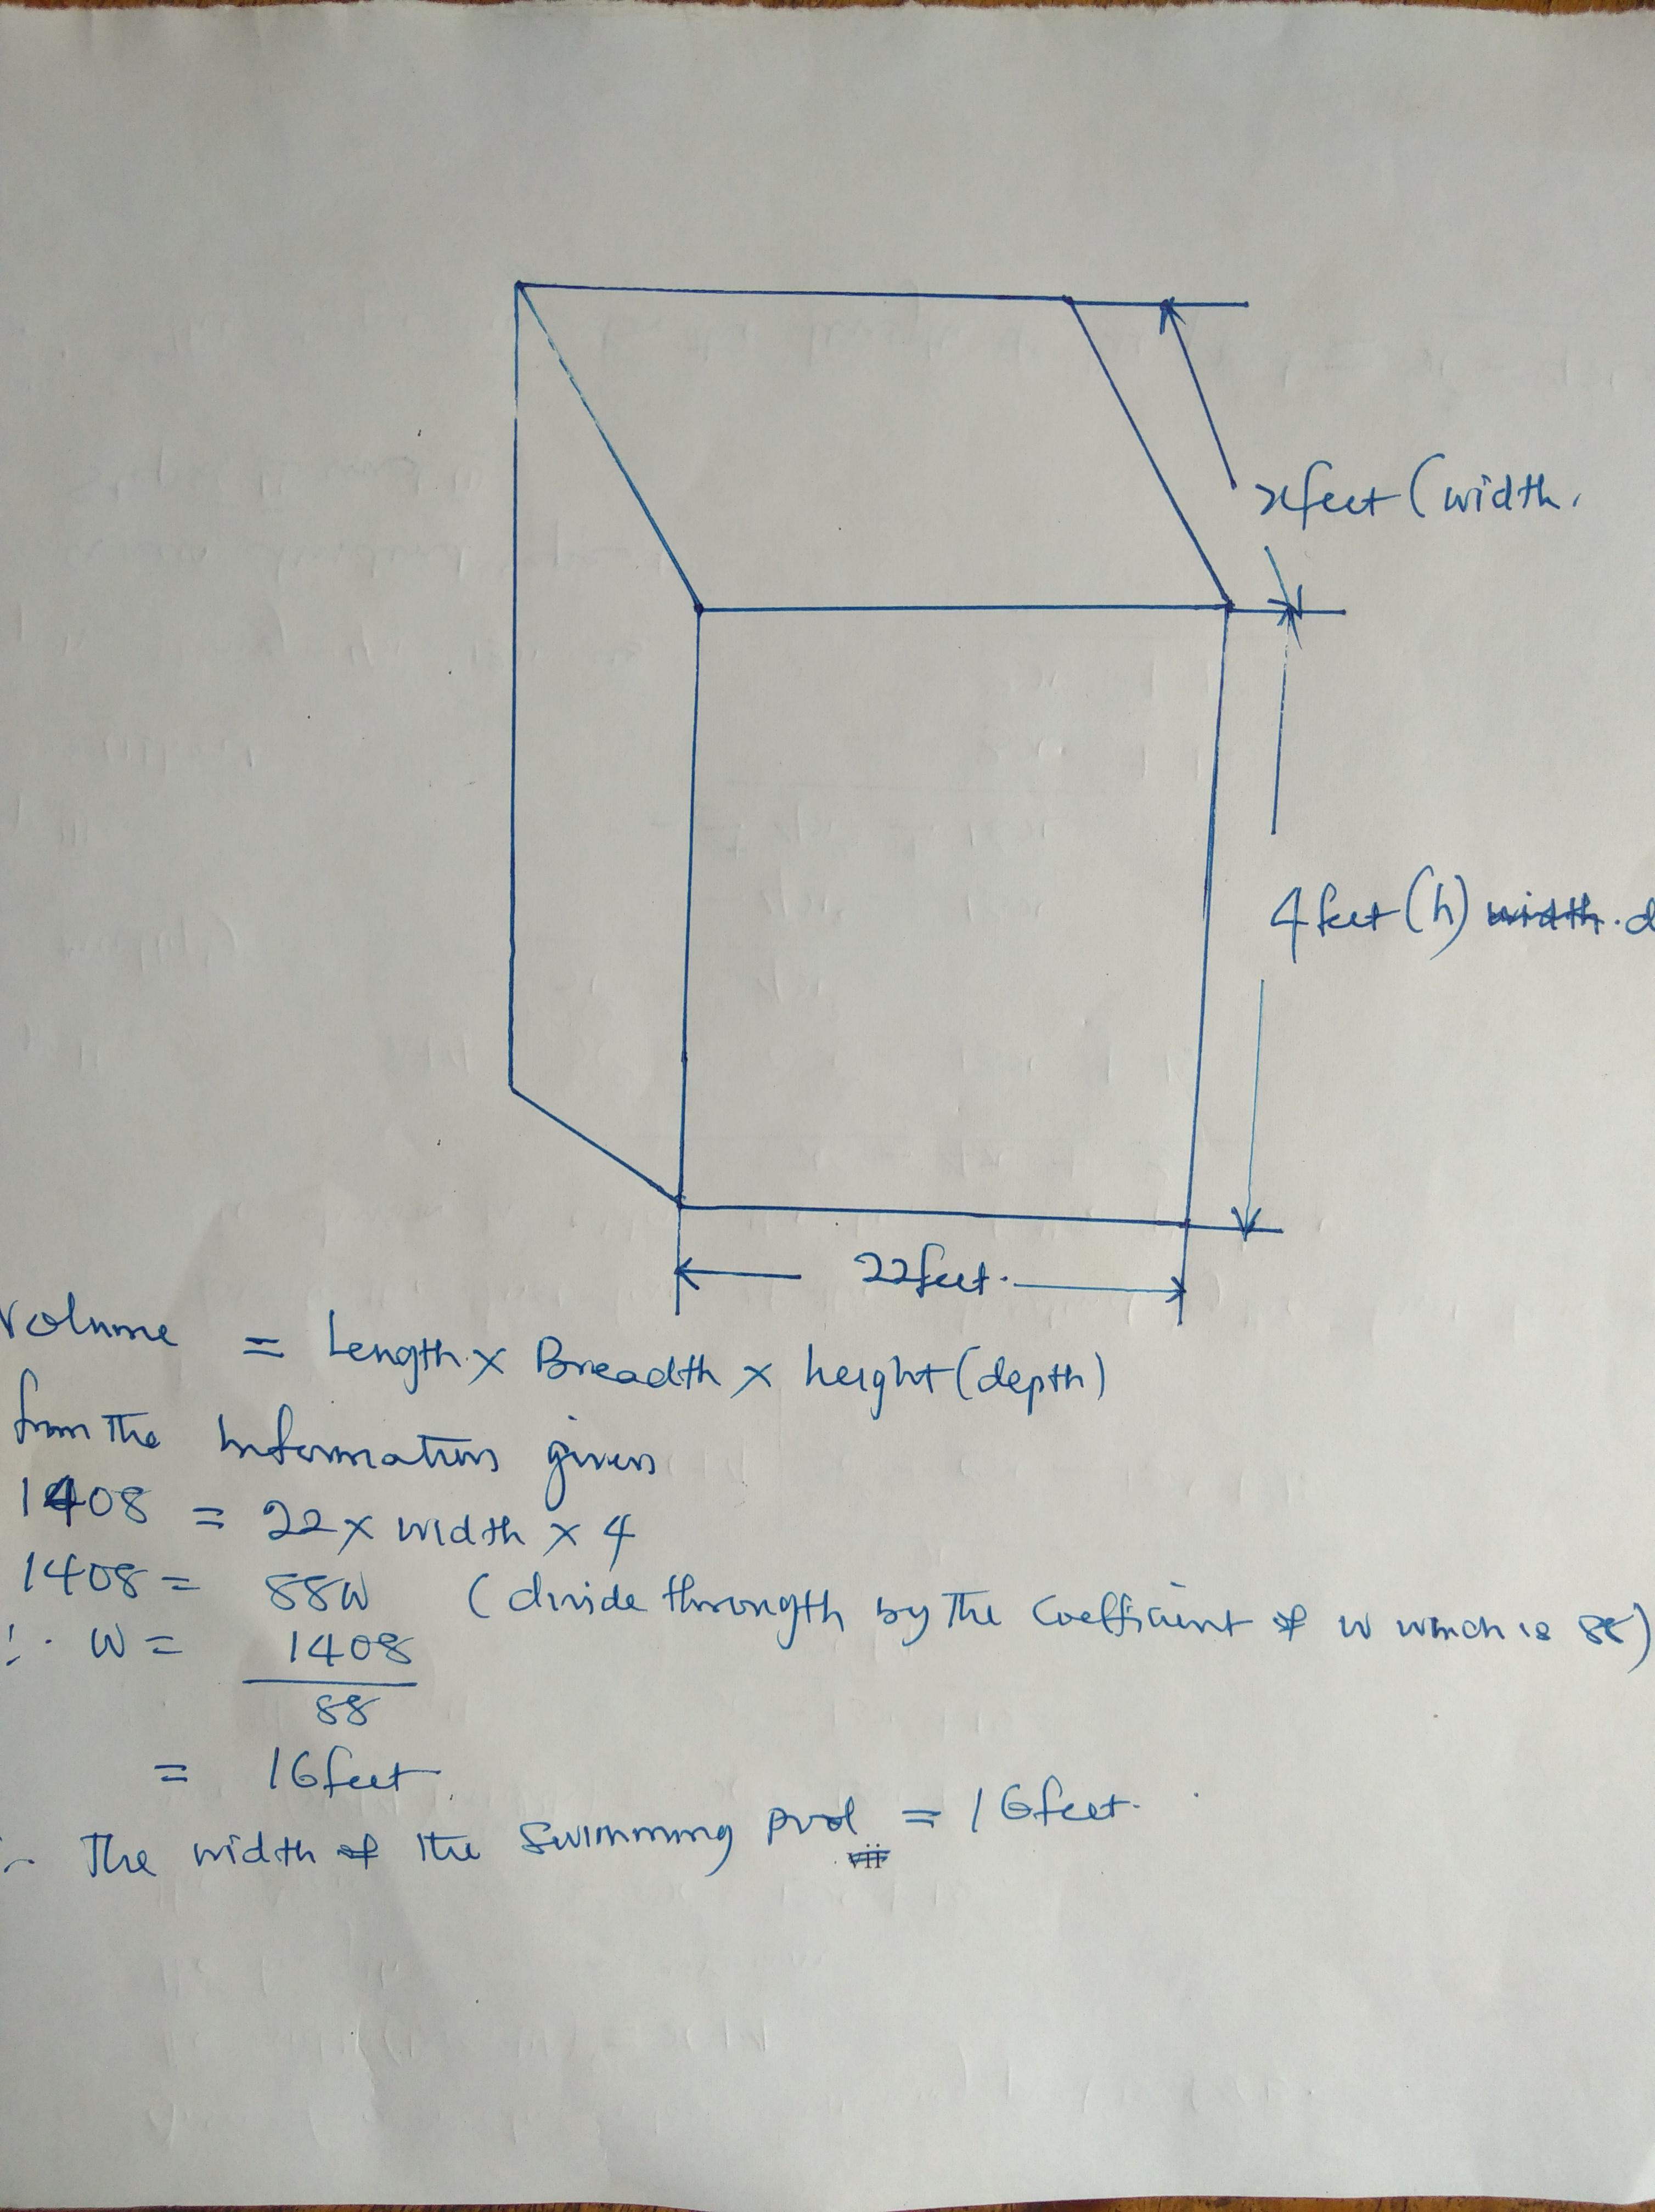 x feet (width.
4 feet (h) width. d
22 feet.
Volume = Length x Breadth x height (depth)
from the Information given
1408 = 22 x width x 4
1408 = 88W (divide throungth by the Coefficient of w which is 88)
∴ W = 1408
88
= 16 feet.
∴ The width of the Swimming pool = 16 feet.
vii